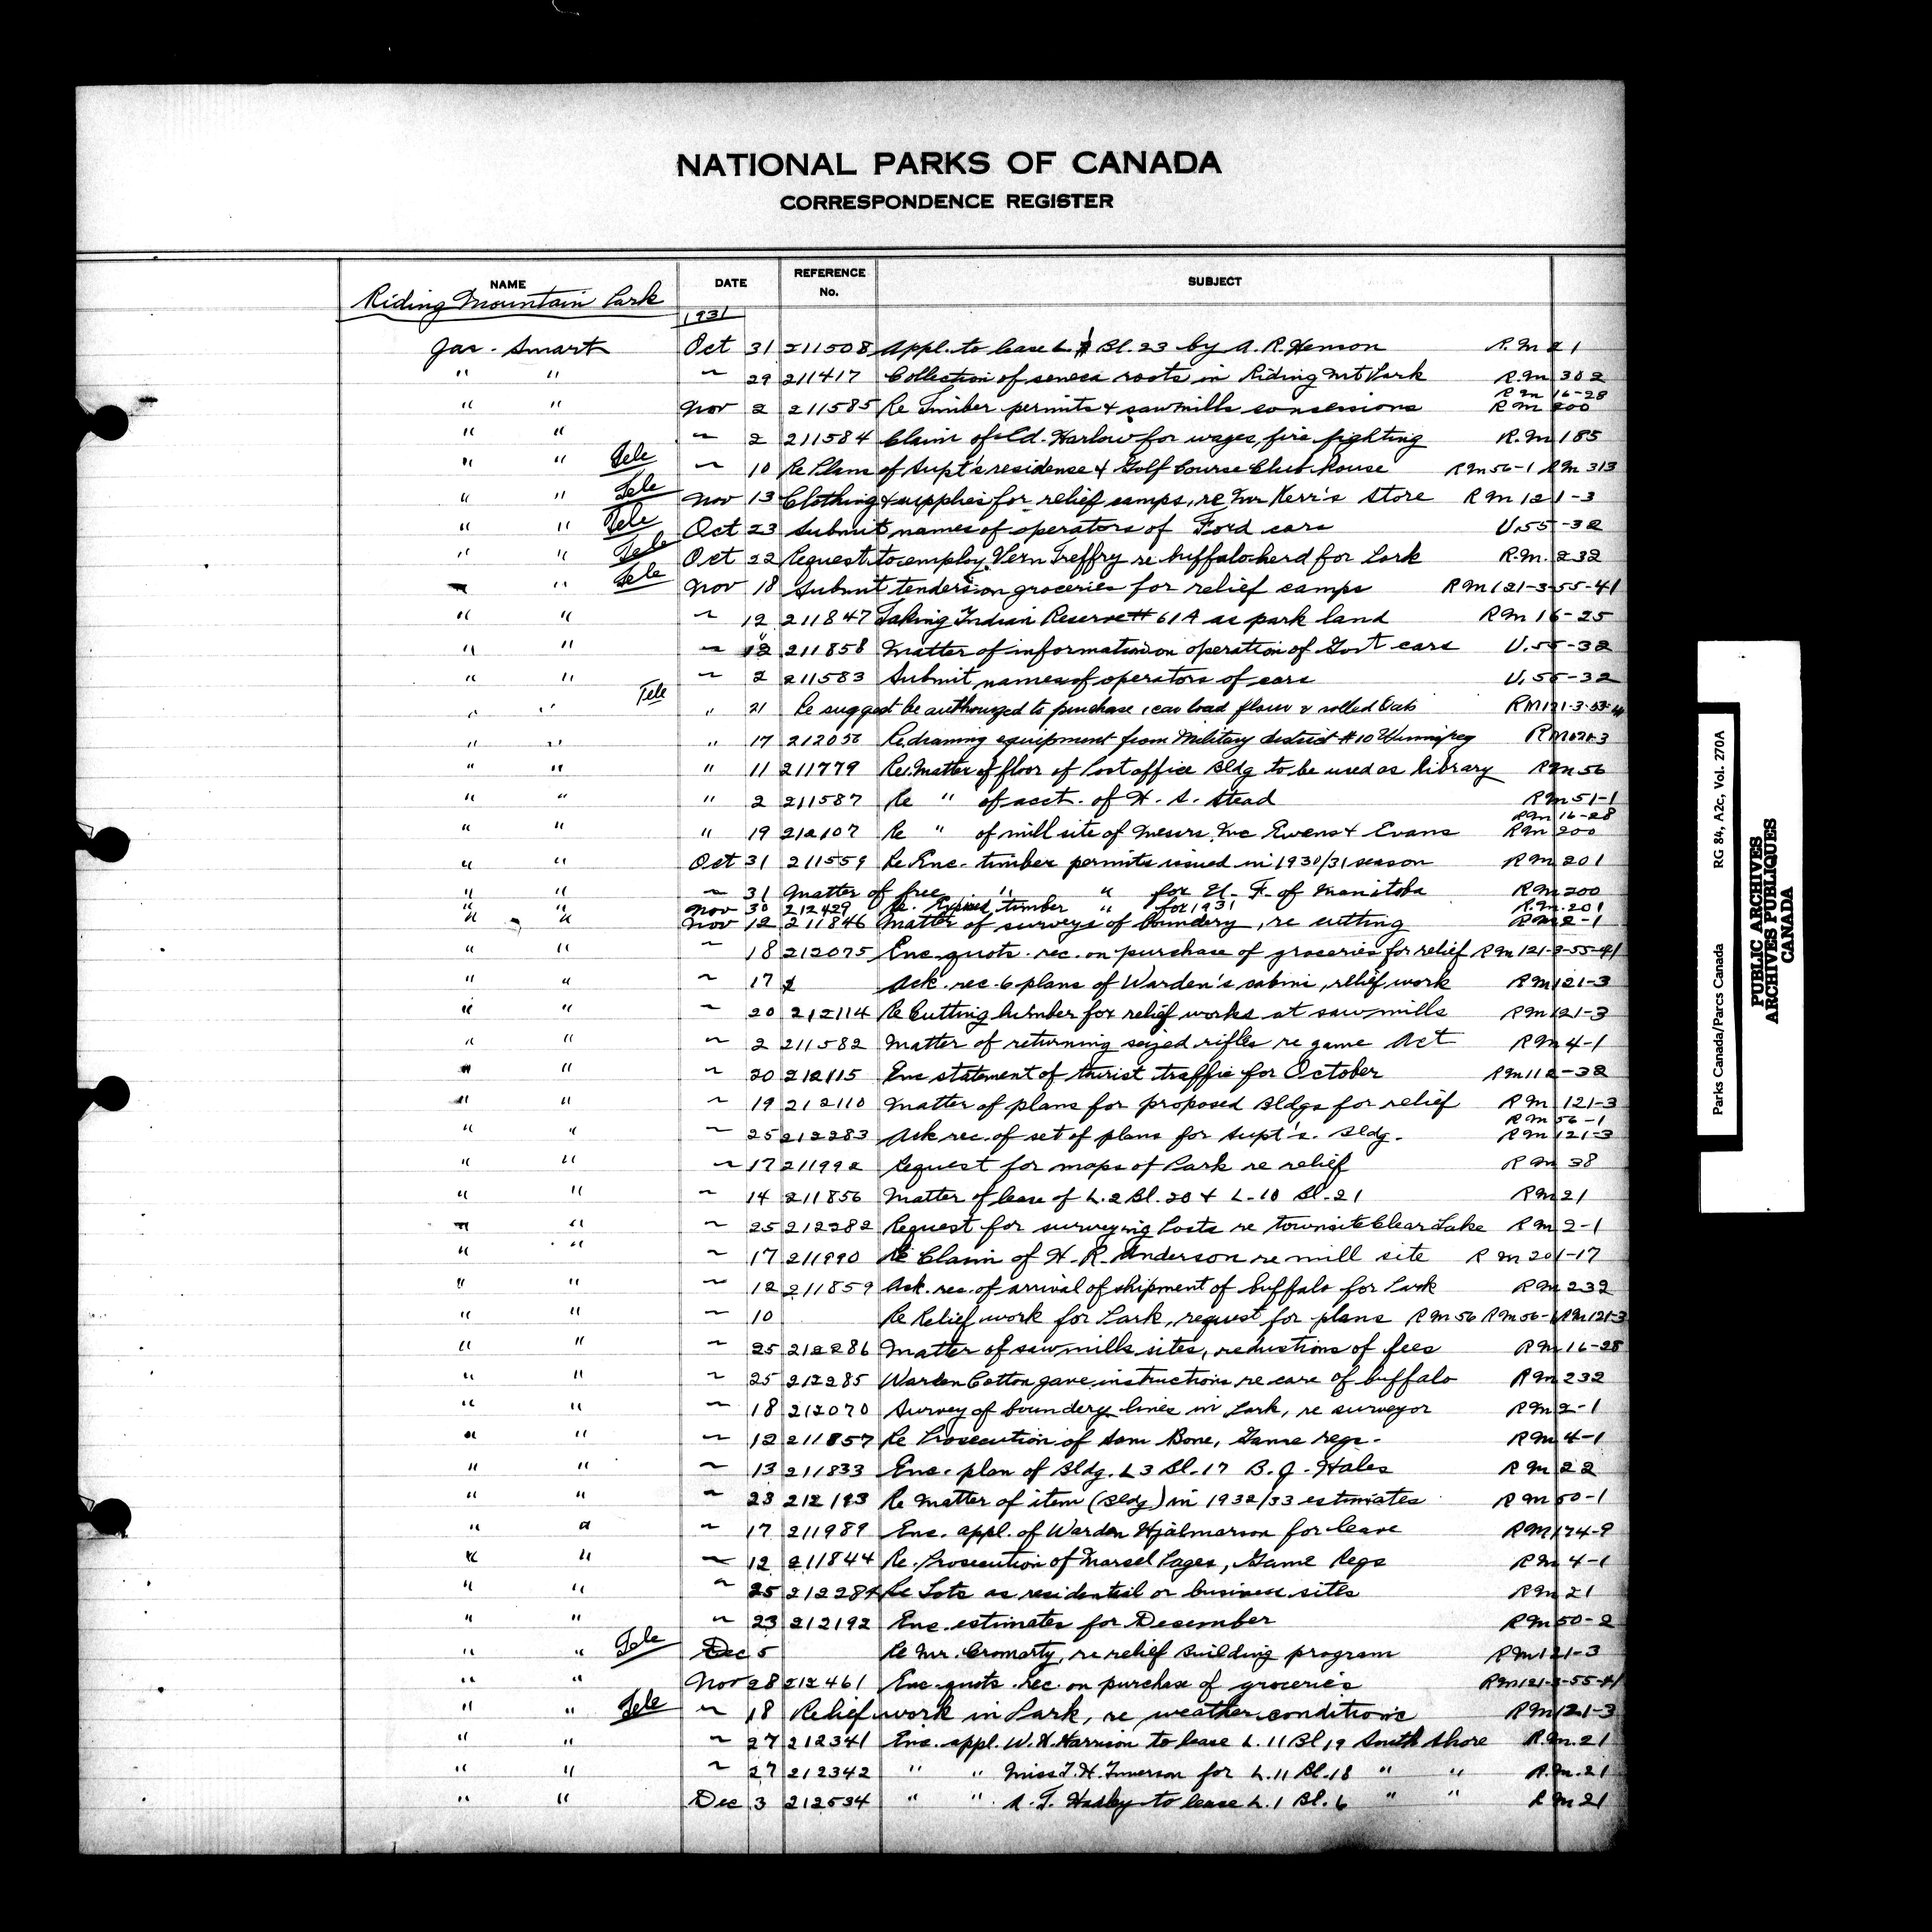 NATIONAL PARKS OF CANADA
CORRESPONDENCE REGISTER
NAME DATE REFERENCE No. SUBJECT
Riding Mountain Park
1931
Jas. Smart Oct 31 211508 Appl. to lease L. 1 Bl. 23 by A. R. Henson R.M 21
" " ~ 29 211417 Collection of seneca roots in Riding Mt Park R.M 302
R M 16-28
" " Nov 2 211585 Re Timber permits & sawmills concessions R M 200
" " ~ 2 211584 Claim of Ed. Harlow for wages, fire fighting R.M 185
" " Tele ~ 10 Re Plans of Supt's residence & Golf Course Club House RM 56-1 RM 313
" " Tele Nov 13 Clothing & supplies for relief camps, re Mr Kerr's store RM 121-3
" " Tele Oct 23 Submit names of operators of Ford cars U.55-32
" " Tele Oct 22 Request to employ Vern Treffry re buffalo herd for Park R.M. 232
" " Tele Nov 18 Submit tenders on groceries for relief camps RM 121-3-55-41
" " ~ 12 211847 Taking Indian Reserve # 61A as park land RM 16-25
" " ~ 12 211858 Matter of information operation of Govt cars U.55-32
" " ~ 2 211583 Submit names of operators of cars U.55-32
" " Tele " 21 Re suggest be authourized to purchase 1 car load flour & rolled Oats RM 121-3-55-41
" " " 17 212056 Re drawing equipment from Military district #10 Winnipeg RM 121-3
" " " 11 211779 Re. Matter of floor of Post office Bldg to be used as library RM 56
" " " 2 211587 Re " of acct. of H. S. Stead RM 51-1
RM 16-28
" " " 19 212107 Re " of mill site of Messrs. Mc Ewens & Evans RM 200
" " Oct 31 211559 Re Enc. timber permits issued in 1930/31 season RM 201
" " ~ 31 Matter of free " " for U. F. of Manitoba RM 200
" " Nov 30 212429 Re. timber " for 1931 R.M. 201
" " Nov 12 211846 Matter of surveys of boundery, re cutting RM 2-1
" " ~ 18 212075 Enc. quots. rec. on purchase of groceries for relief RM 121-3-55-41
" " ~ 17 Ack. rec. 6 plans of Warden's cabins, relief work RM 121-3
" " ~ 20 212114 Re Cutting lumber for relief works at sawmills RM 121-3
" " ~ 2 211582 Matter of returning seized rifles re game Act RM 4-1
" " ~ 20 212115 Enc statement of tourist traffic for October RM 112-38
" " ~ 19 212110 Matter of plans for proposed Bldgs for relief RM 121-3
RM 56-1
" " ~ 25 212283 Ack rec. of set of plans for Supt's. Bldg. RM 121-3
" " ~ 17 211992 Request for maps of Park re relief RM 38
" " ~ 14 211856 Matter of lease of L.2 Bl. 20 & L-10 Bl-21 RM 21
" " ~ 25 212282 Request for surveying Posts re townsite Clear Lake RM 2-1
" " ~ 17 211990 Re Claim of H. R. Anderson re mill site RM 201-17
" " ~ 12 211859 Ack. rec. of arrival of shipment of buffalo for Park RM 232
" " ~ 10 Re Relief work for Park, request for plans RM 56 RM 56-1 RM 121-3
" " ~ 25 212286 Matter of sawmills sites, reductions of fees RM 16-28
" " ~ 25 212285 Warden Cotton gave instructions re care of buffalo RM 232
" " ~ 18 212070 Survey of boundery lines in Park, re surveyor RM 2-1
" " ~ 12 211857 Re Prosecution of Sam Bone, Game regs. RM 4-1
" " ~ 13 211833 Enc. plan of Bldg. L 3 Bl. 17 B. J. Hales RM 22
" " ~ 23 212193 Re Matter of item (Bldg) in 1932/33 estimates RM 50-1
" " ~ 17 211989 Enc. appl. of Warden Hjalmarson for leave RM 174-9
" " ~ 12 211844 Re. Prosecution of Marcel Pages, Game Regs RM 4-1
" " ~ 25 212284 Re Lots as residential or business sites RM 21
" " ~ 23 212192 Enc. estimates for December RM 50-2
" " Tele Dec 5 Re Mr. Cromarty, re relief building program RM 121-3
" " Nov 28 212461 Enc. quots. rec. on purchase of groceries RM 121-3-55-41
" " Tele ~ 18 Relief work in Park, re weather conditions RM 121-3
" " ~ 27 212341 Enc. appl. W. H. Harrison to lease L. 11 Bl 19 South Shore R.M. 21
" " ~ 27 212342 " " Miss T. H. for L. 11 Bl. 18 " " R.M. 21
" " Dec 3 212534 " " to lease L. 1 Bl. 6 " " RM 21
Parks Canada/Parcs Canada RG 84, A2c, Vol. 270A
PUBLIC ARCHIVES
ARCHIVES PUBLIQUES
CANADA